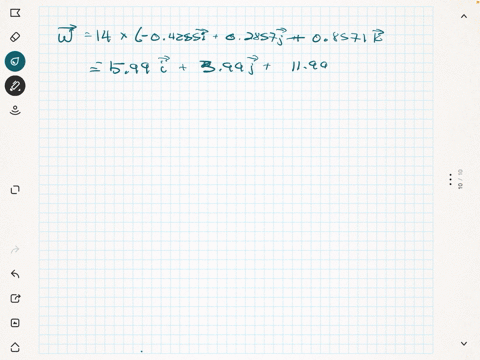 w⃗ = 14 × (-0.4285i⃗ + 0.2857j⃗ + 0.8571 k⃗
= 5.99 i⃗ + 3.99j⃗ + 11.99
10 / 10